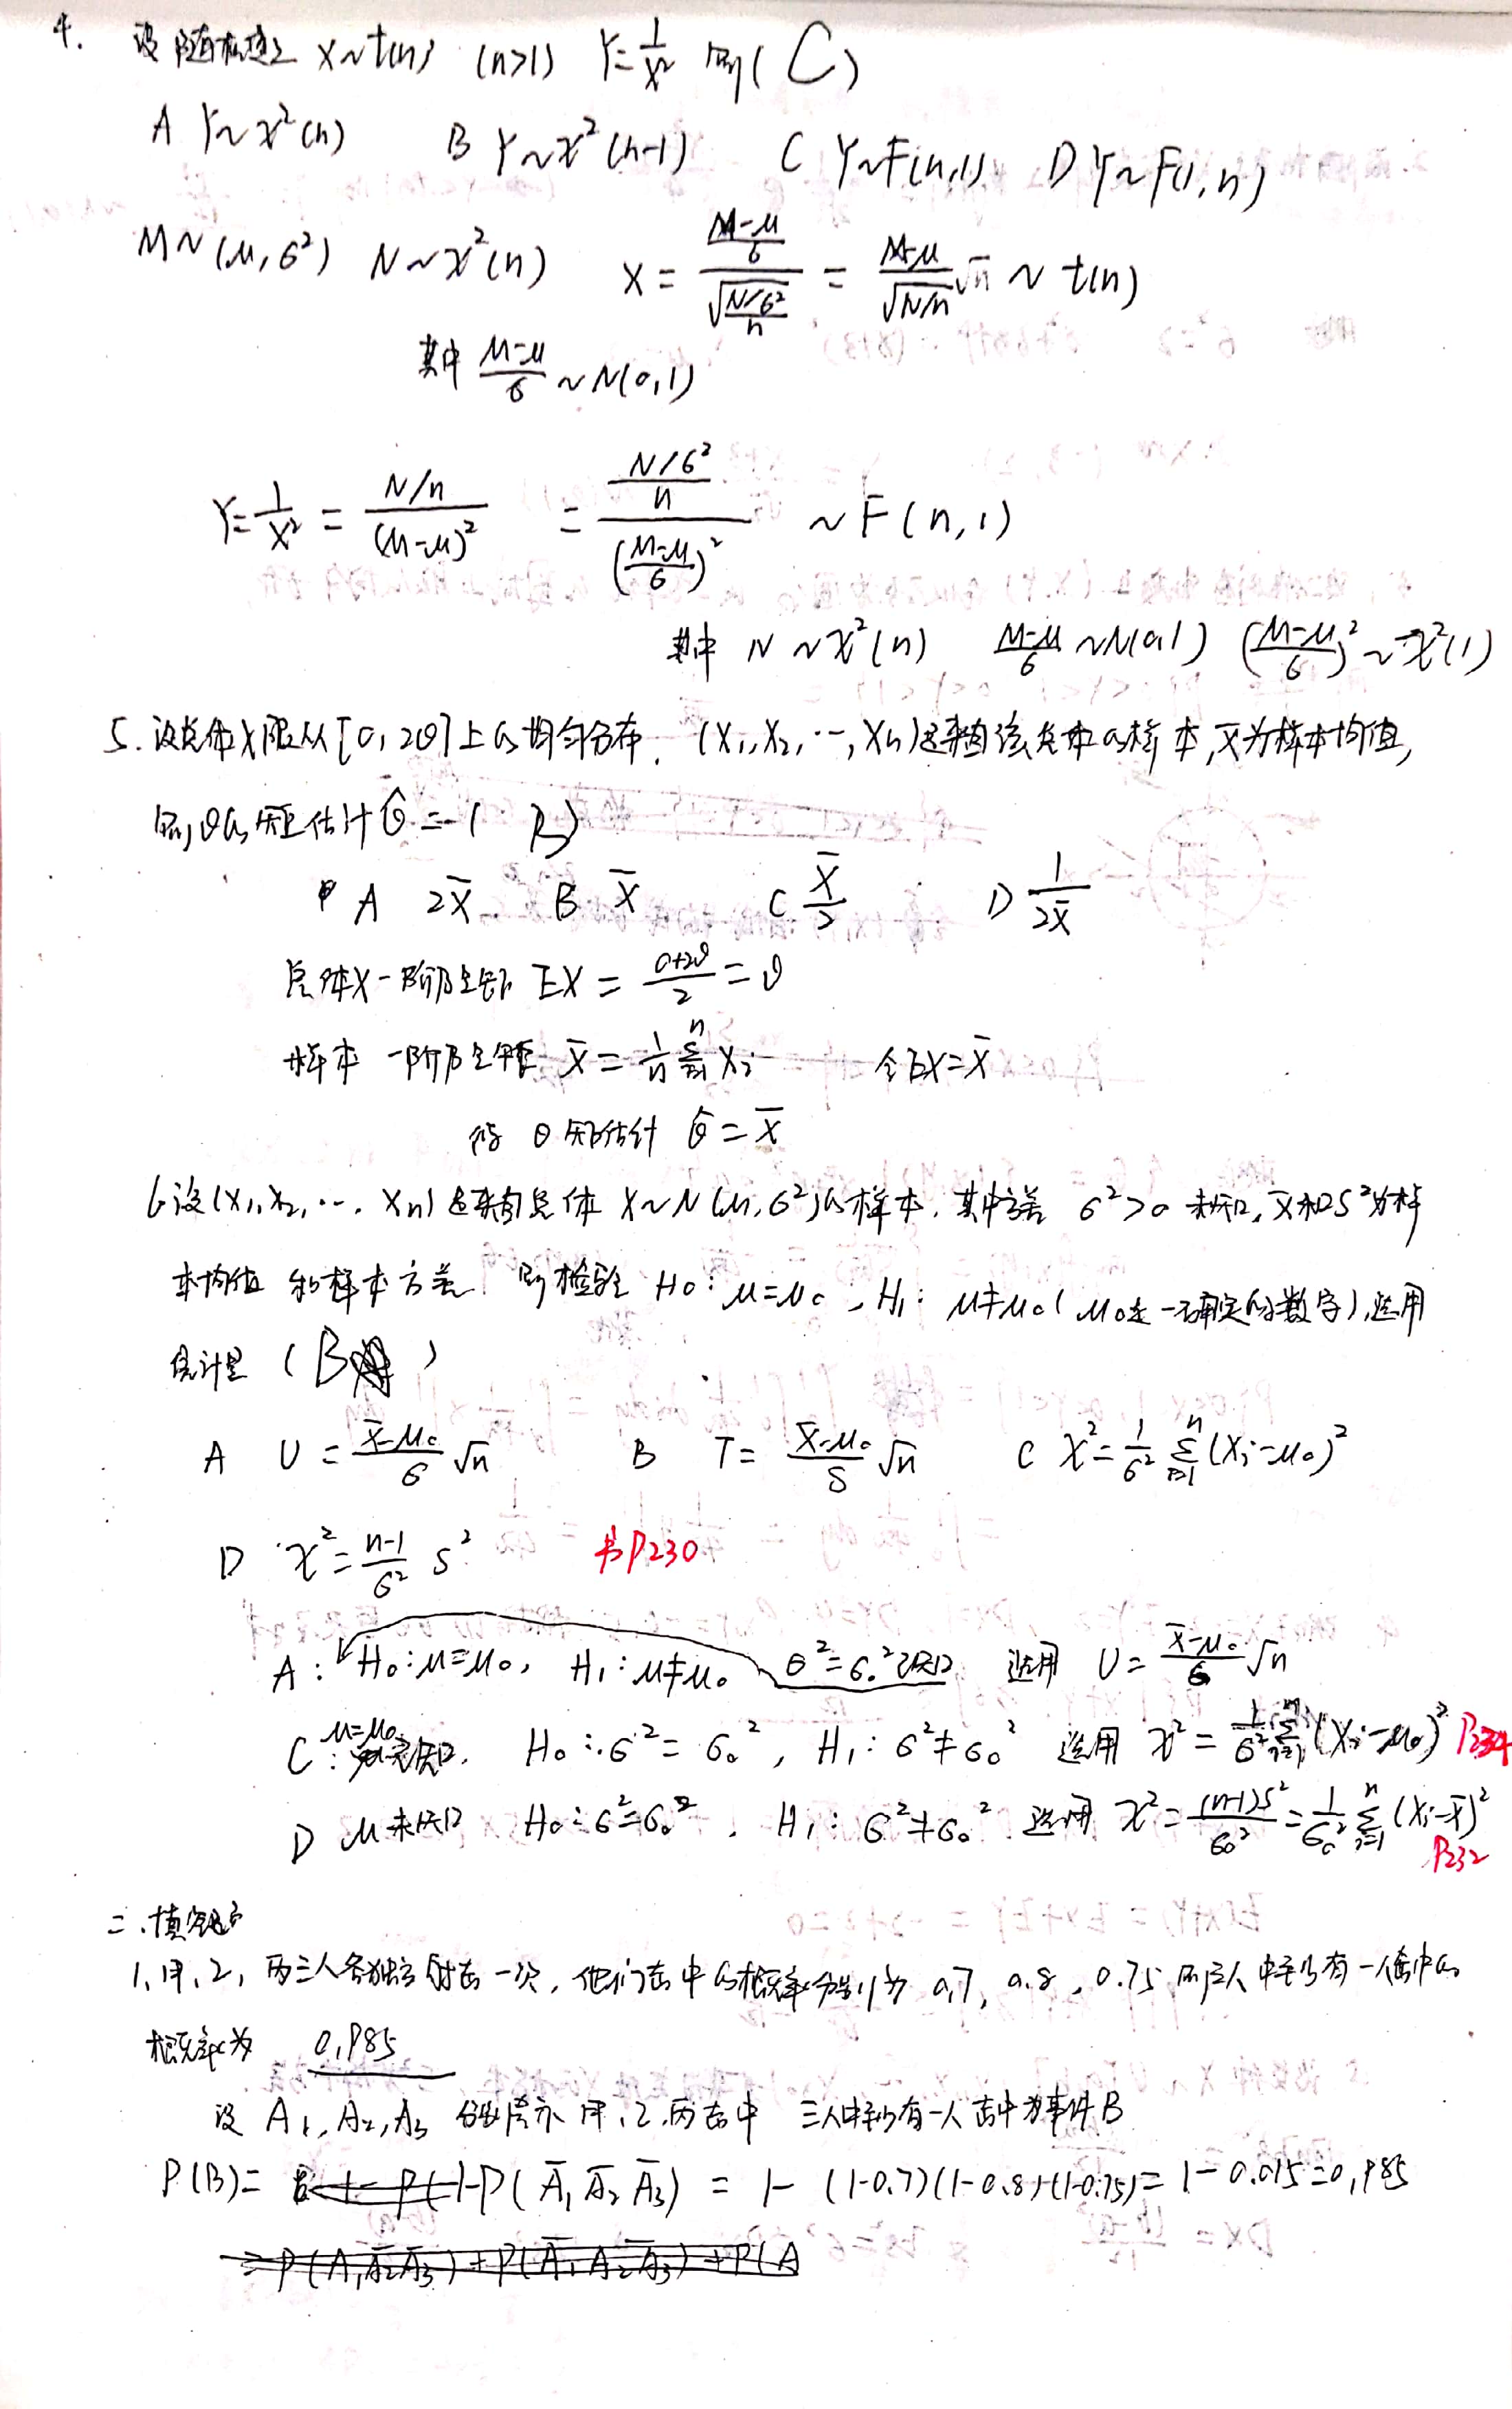 4. 设随机变量 X~t(n) (n>1) Y=1/X² 则( C )
A Y~χ²(n) B Y~χ²(n-1) C Y~F(n,1) D Y~F(1,n)
M~(μ,σ²) N~χ²(n) X = ((M-μ)/σ)/√((N/σ²)/n) = (M-μ)/√(N/n) √n ~ t(n)
其中 (M-μ)/σ ~N(0,1)
Y=1/X² = (N/n)/(M-μ)² = ((N/σ²)/n)/((M-μ)/σ)² ~F(n,1)
其中 N~χ²(n) (M-μ)/σ ~N(0,1) ((M-μ)/σ)² ~χ²(1)
5. 设总体X服从[0,2θ]上的均匀分布. (X₁,X₂,…,Xn)是来自该总体的样本,X̄为样本均值,
则θ的矩估计θ̂=( B )
A 2X̄ B X̄ C X̄/2 D 1/(2X̄)
总体X一阶原点矩 EX = (0+2θ)/2 = θ
样本一阶原点矩 X̄ = 1/n Σⁿᵢ₌₁ Xᵢ 令EX=X̄
得 θ矩估计 θ̂=X̄
6 设(X₁,X₂,…,Xn)是来自总体 X~N(μ,σ²)的样本. 其中方差 σ²>0 未知, X̄和S²为样
本均值和样本方差. 则检验 H₀:μ=μ₀, H₁:μ≠μ₀(μ₀是一确定的数字),选用
统计量 ( B )
A U = (X̄-μ₀)/σ √n B T = (X̄-μ₀)/S √n C χ²=1/σ² Σⁿᵢ₌₁(Xᵢ-μ₀)²
D χ²=(n-1)/σ² S² 书P230
A: H₀:μ=μ₀, H₁:μ≠μ₀ σ²=σ₀²已知 选用 U=(X̄-μ₀)/σ √n
C: μ=μ₀已知. H₀:σ²=σ₀², H₁:σ²≠σ₀² 选用 χ²=1/σ² Σⁿᵢ₌₁(Xᵢ-μ₀)² P234
D μ未知 H₀:σ²=σ₀², H₁:σ²≠σ₀² 选用 χ²=(n-1)S²/σ₀²=1/σ₀² Σⁿᵢ₌₁(Xᵢ-X̄)²
P232
二.填空题
1.甲,乙,丙三人各独立射击一次,他们击中的概率分别为 0.7, 0.8, 0.75 则三人中至少有一人击中的
概率为 0.985
设 A₁,A₂,A₃ 分别表示甲,乙,丙击中 三人中至少有一人击中为事件B
P(B)= 1-P(Ā₁Ā₂Ā₃) = 1-(1-0.7)(1-0.8)(1-0.75)=1-0.015=0.985
=P(A₁Ā₂Ā₃)+P(Ā₁A₂Ā₃)+P(A